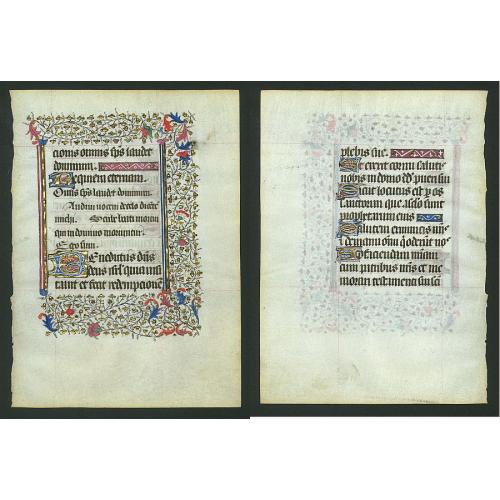 cionis omnis sps laudet
dominum.
Requiem eternam.
Omnis sps laudet dominum.
Audivi vocem de celo dicente
michi. Beati mortui
qui in domino moriuntur.
Ego sum.
Benedictus dns
deus isrl quia visi
tavit et fecit redempcione
plebis sue.
Et erexit cornu salutis
nobis in domo dd pueri sui
Sicut locutus est p os
sanctorum qui a seculo sunt
prophetarum eius
Salutem ex inimicis nris
z de manu oim q oderunt nos
Ad faciendam miam
cum patribus nris et me
morari testamenti sui sci